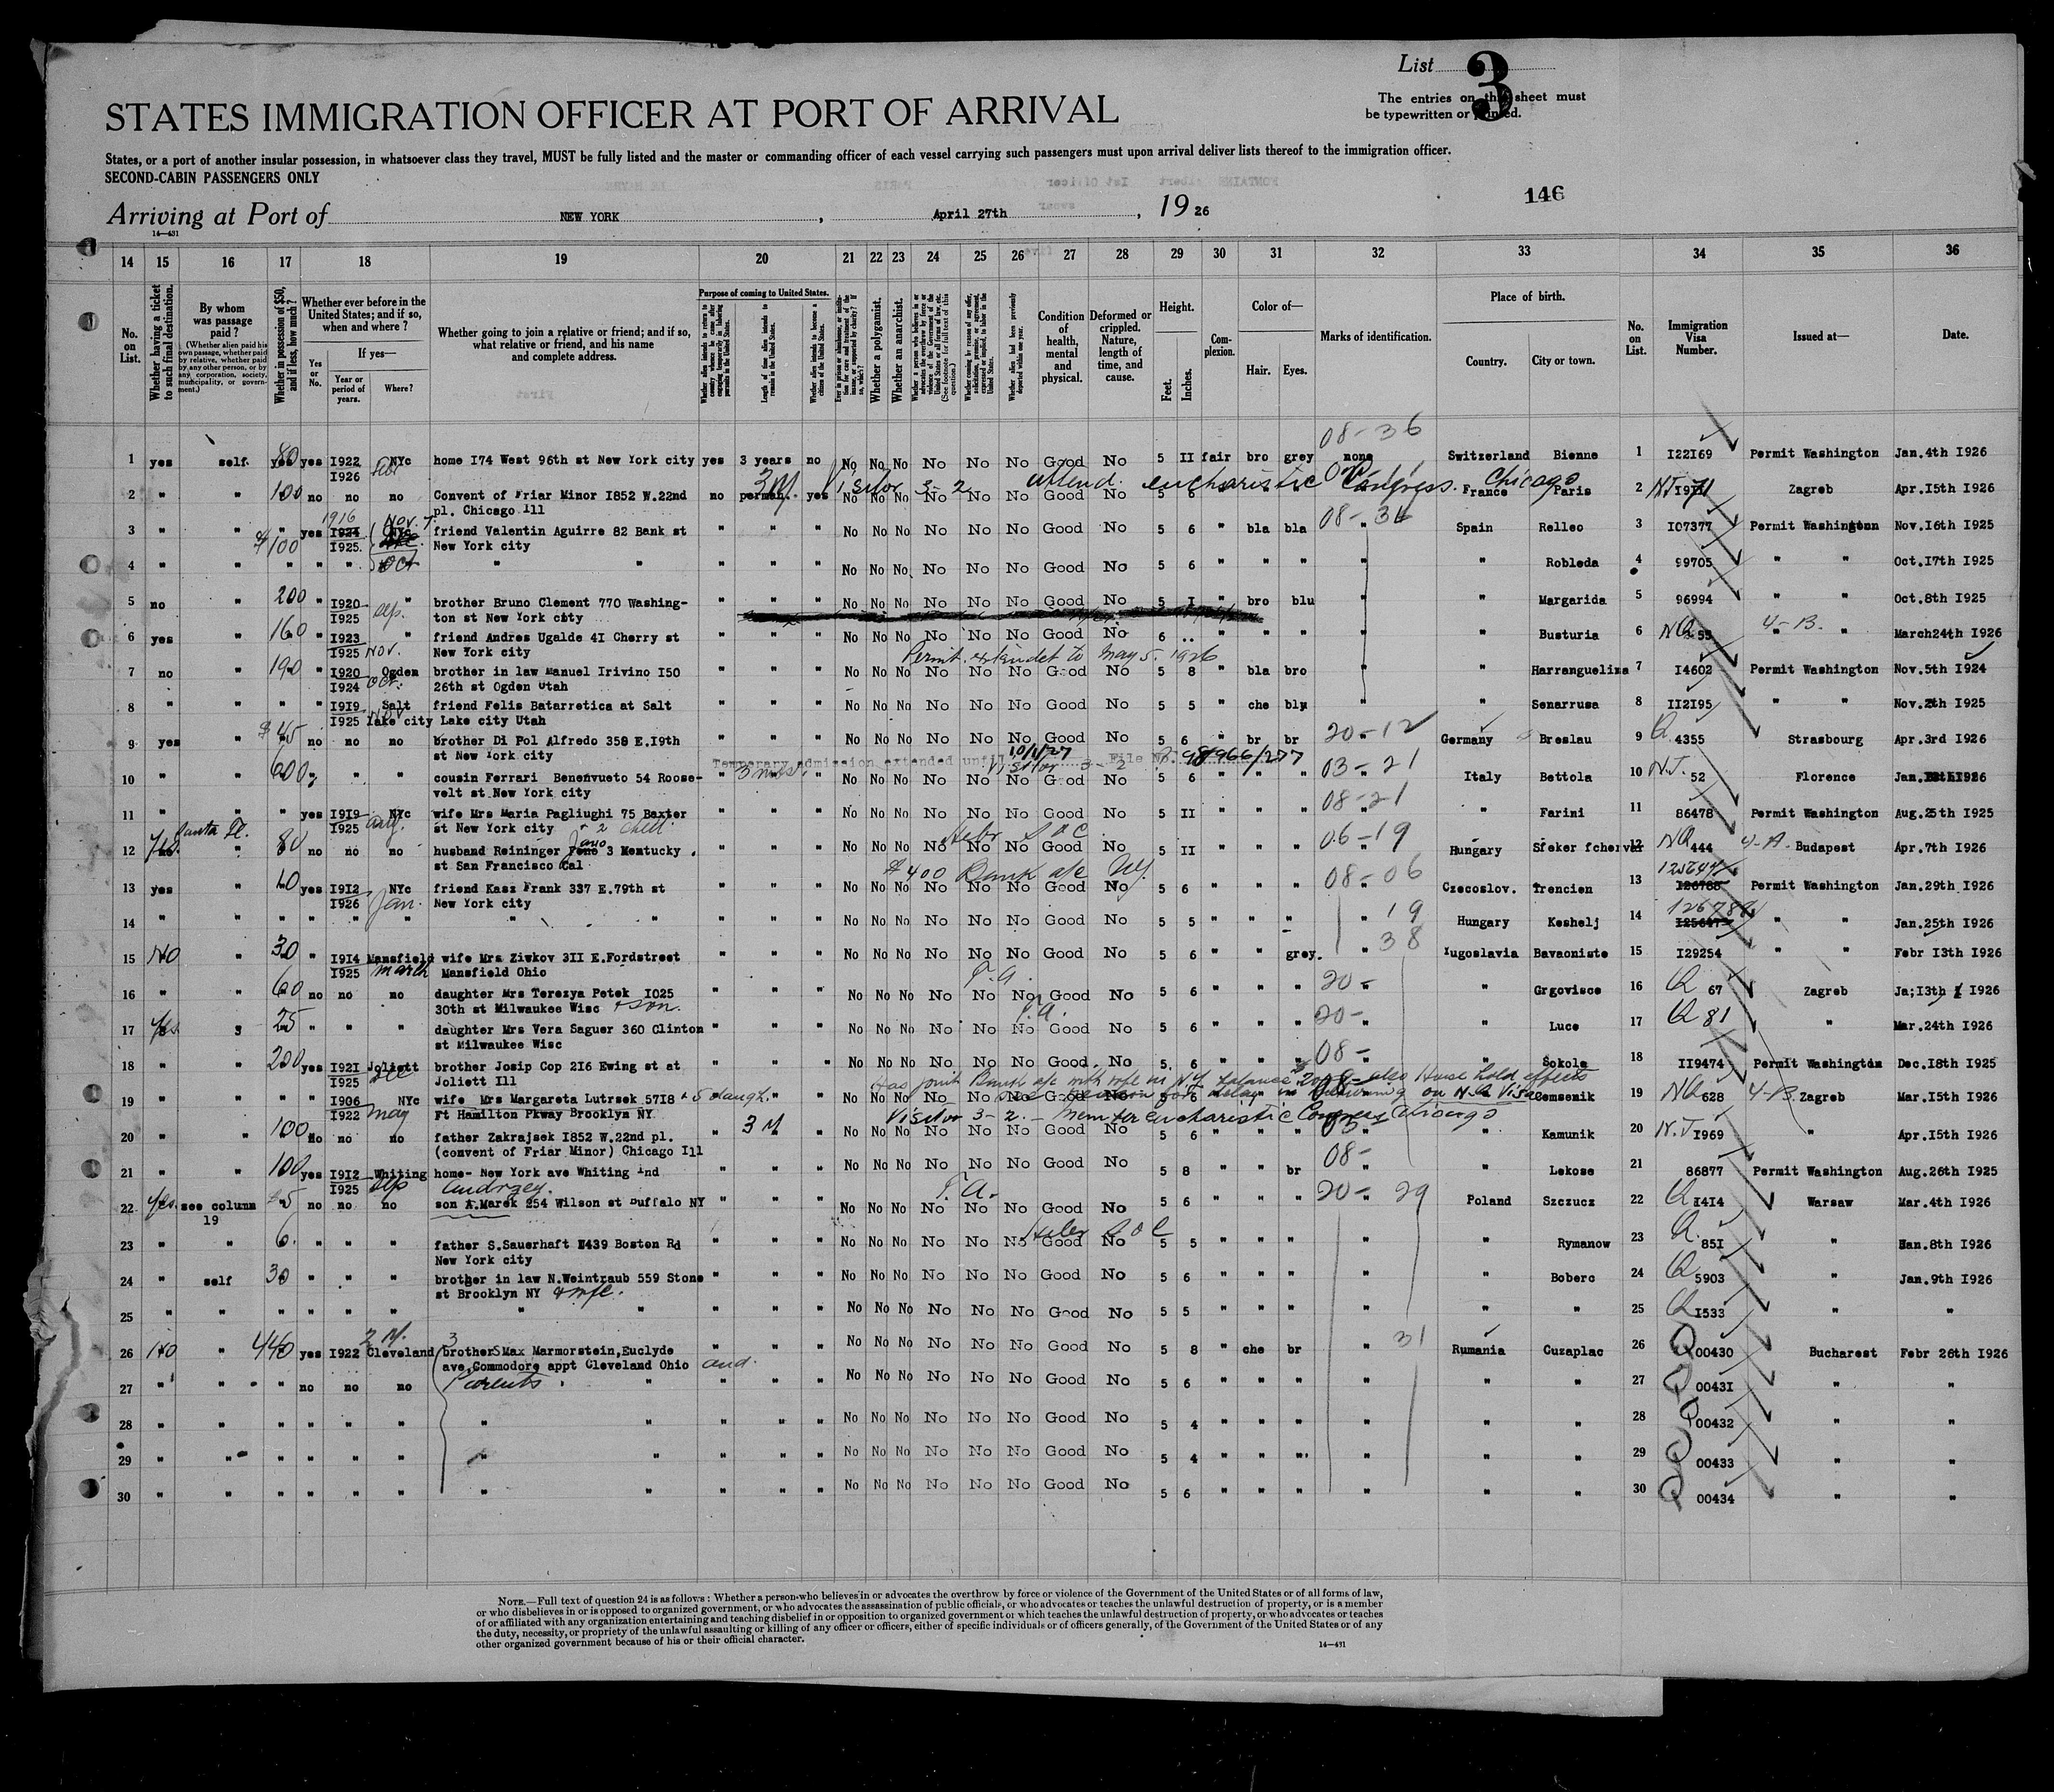 List 3
The entries on this sheet must
be typewritten or printed.
STATES IMMIGRATION OFFICER AT PORT OF ARRIVAL
States, or a port of another insular possession, in whatsoever class they travel, MUST be fully listed and the master or commanding officer of each vessel carrying such passengers must upon arrival deliver lists thereof to the immigration officer.
SECOND-CABIN PASSENGERS ONLY
146
Arriving at Port of NEW YORK, April 27th, 1926
14—431
14 15 16 17 18 19 20 21 22 23 24 25 26 27 28 29 30 31 32 33 34 35 36
No. on List.
Whether having a ticket to such final destination.
By whom was passage paid?
(Whether alien paid his own passage, whether paid by relative, whether paid by any other person, or by any corporation, society, municipality, or government.)
Whether in possession of $50, and if less, how much?
Whether ever before in the United States; and if so, when and where?
Yes or No.
If yes—
Year or period of years.
Where?
Whether going to join a relative or friend; and if so, what relative or friend, and his name and complete address.
Purpose of coming to United States.
Length of time alien intends to remain in the United States.
Whether alien intends to become a citizen of the United States.
Whether a polygamist.
Whether an anarchist.
Condition of health, mental and physical.
Deformed or crippled. Nature, length of time, and cause.
Height.
Feet. Inches.
Complexion.
Color of—
Hair. Eyes.
Marks of identification.
Place of birth.
Country. City or town.
No. on List.
Immigration Visa Number.
Issued at—
Date.
08-36
1 yes self 80 yes I922 NYc home I74 West 96th st New York city yes 3 years no No No No No No No Good No 5 II fair bro grey none Switzerland Bienne 1 I22I69 Permit Washington Jan.4th I926
I926
3M Visitor 3-2 attend eucharistic Congress. Chicago
2 " " 100 no no no Convent of Friar Minor I852 W.22nd no perman. yes No No No No No No Good No 5 6 " " " France Paris 2 Zagreb Apr.I5th I926
pl. Chicago Ill
1916 Nov. 08-36
3 " " " yes I924 friend Valentin Aguirre 82 Bank st " " " No No No No No No Good No 5 6 " bla bla " Spain Relleo 3 I07377 Permit Washington Nov.I6th I925
$100 I925. New York city
Oct
4 " " " " " " " " " " No No No No No No Good No 5 6 " " " " " Robleda 4 99705 " " Oct.I7th I925
5 no " 200 " I920 " brother Bruno Clement 770 Washing- " " " No No No No No No Good No 5 I " bro blu " " Margarida 5 96994 " " Oct.8th I925
I925 Sep. ton st New York city
6 yes " 160 " I923 " friend Andres Ugalde 4I Cherry st " " " No No No No No No Good No 6 .. " " " " " Busturia 6 " " March24th I926
4-B.
I925 Nov. New York city
Permit extended to May 5. 1926
7 no " 190 " I920 Ogden brother in law Manuel Irivino I50 " " " No No No No No No Good No 5 8 " bla bro " " Harranguelina 7 I4602 Permit Washington Nov.5th I924
I924 Oct. 26th st Ogden Utah
8 " " " " I9I9 Salt friend Felis Batarretica at Salt " " " No No No No No No Good No 5 5 " che blu " " Senarrusa 8 II2I95 " " Nov.2th I925
I925 lake city Nov Lake city Utah
9 yes " $45 no no no brother Di Pol Alfredo 358 E.I9th " " " No No No No No No Good No 5 6 " br br 20-12 Germany Breslau 9 Q 4355 Strasbourg Apr.3rd I926
st New York city
Temporary admission extended until 10/1/27 File No. 98966/277
Visitor 3-2
10 " " 600 " " " cousin Ferrari Benenvueto 54 Roose- " 3 mos. " No No No No No No Good No " " " 03-21 Italy Bettola 10 N.I. 52 Florence I926
velt st New York city
11 " " " yes I9I9 NYc wife Mrs Maria Pagliughi 75 Baxter " " " No No No No No No Good No 5 II " " " 08-21 " Farini 11 86478 Permit Washington Aug.25th I925
I925 Aug. st New York city + 2 child.
12 Yes. Santa Fe. " 80 no no no husband Reininger Jeno 3 Kentucky " " " No No No No No No Good No 5 II " " " 06-19 Hungary 12 NQ 444 4-A. Budapest Apr.7th I926
Hebr S.O.C.
st San Francisco Cal
$400 Bank a/c NY
13 yes " 40 yes I9I2 NYc friend Kasz Frank 337 E.79th st " " " No No No No No No Good No 5 6 " " " 08-06 Czecoslov. Trencien 13 Permit Washington Jan.29th I926
I926 Jan. New York city
14 " " " " " " " " " " " No No No No No No Good No 5 5 " " " " 19 Hungary Keshelj 14 " " Jan.25th I926
15 No " 30 " I9I4 Mansfield wife Mrs Ziwkov 3II E.Fordstreet " " " No No No No No No Good No 5 6 " " grey. " 38 Yugoslavia Bavaoniste 15 I29254 " " Febr I3th I926
I925 March Mansfield Ohio
P.A.
16 " " 60 no no no daughter Mrs Terezya Petek I025 " " " No No No No No No Good No 5 6 " " " 20- " Grgovisce 16 Q 67 Zagreb Ja;I3th I926
30th st Milwaukee Wisc + son.
P.A.
17 Yes. 25 " " " daughter Mrs Vera Saguer 360 Clinton " " " No No No No No No Good No 5 6 " " " 20- " Luce 17 Q 81 " Mar.24th I926
st Milwaukee Wisc
18 " " 200 yes I92I Joliett brother Josip Cop 2I6 Ewing st at " " " No No No No No No Good No 5 6 " " " 08- " Sokola 18 II9474 Permit Washington Dec.I8th I925
I925 Dec Joliett Ill
Has joint Bank a/c with wife in N.Y. balance also House hold effects
19 " " " " I906 NYc wife Mrs Margareta Lutrsek 57I8 + 5 daught. " " No No No No No No Good No 5 6 Comsenik 19 NQ 628 4-B. Zagreb Mar.I5th I926
I922 May Ft Hamilton Pkway Brooklyn NY
Visitor 3-2. - Member eucharistic Congress Chicago
20 " " 100 no no no father Zakrajsek I852 W.22nd pl. " 3 M " No No No No No No Good No 5 6 " " " " Kamunik 20 N.I I969 " Apr.I5th I926
(convent of Friar Minor) Chicago Ill
21 " " 100 yes I9I2 Whiting home- New York ave Whiting Ind " " " No No No No No No Good No 5 8 " " br 08- " Lekose 21 86877 Permit Washington Aug.26th I925
I925 Sep Andrzey.
P.A.
22 Yes. see column 5 no no no son A.Marek 254 Wilson st Buffalo NY " " " No No No No No No Good No 5 6 " " " 20- 29 Poland Szczucz 22 Q I4I4 Warsaw Mar.4th I926
19
23 " " 6. " " " father S.Sauerhaft I439 Boston Rd " " " No No No No No No Good No 5 5 " " " " " Rymanow 23 Q 85I " Jan.8th I926
New York city
24 " self 30 " " " brother in law N.Weintraub 559 Stone " " " No No No No No No Good No 5 6 " " " " " Boberc 24 Q 5903 " Jan.9th I926
st Brooklyn NY + wife.
25 " " " " " " " " " " " No No No No No No Good No 5 5 " " " " " " 25 Q I533 " "
2 M. 3
26 No " 440 yes I922 Cleveland brothers Max Marmorstein,Euclyde " " " No No No No No No Good No 5 8 " che br " 31 Rumania Cuzaplac 26 Q 00430 Bucharest Febr 26th I926
ave,Commodore appt Cleveland Ohio and
27 " " " no no no Parents " " " " No No No No No No Good No 5 6 " " " " " " 27 Q 0043I " "
28 " " " " " " " " " " " No No No No No No Good No 5 4 " " " " " " 28 Q 00432 " "
29 " " " " " " " " " " " No No No No No No Good No 5 4 " " " " " " 29 Q 00433 " "
30 " " " " " " " " " " " No No No No No No Good No 5 6 " " " " " " 30 Q 00434 " "
NOTE.—Full text of question 24 is as follows: Whether a person who believes in or advocates the overthrow by force or violence of the Government of the United States or of all forms of law,
or who disbelieves in or is opposed to organized government, or who advocates the assassination of public officials, or who advocates or teaches the unlawful destruction of property, or is a member
of or affiliated with any organization entertaining and teaching disbelief in or opposition to organized government or which teaches the unlawful destruction of property, or who advocates or teaches
the duty, necessity, or propriety of the unlawful assaulting or killing of any officer or officers, either of specific individuals or of officers generally, of the Government of the United States or of any
other organized government because of his or their official character.
14—431